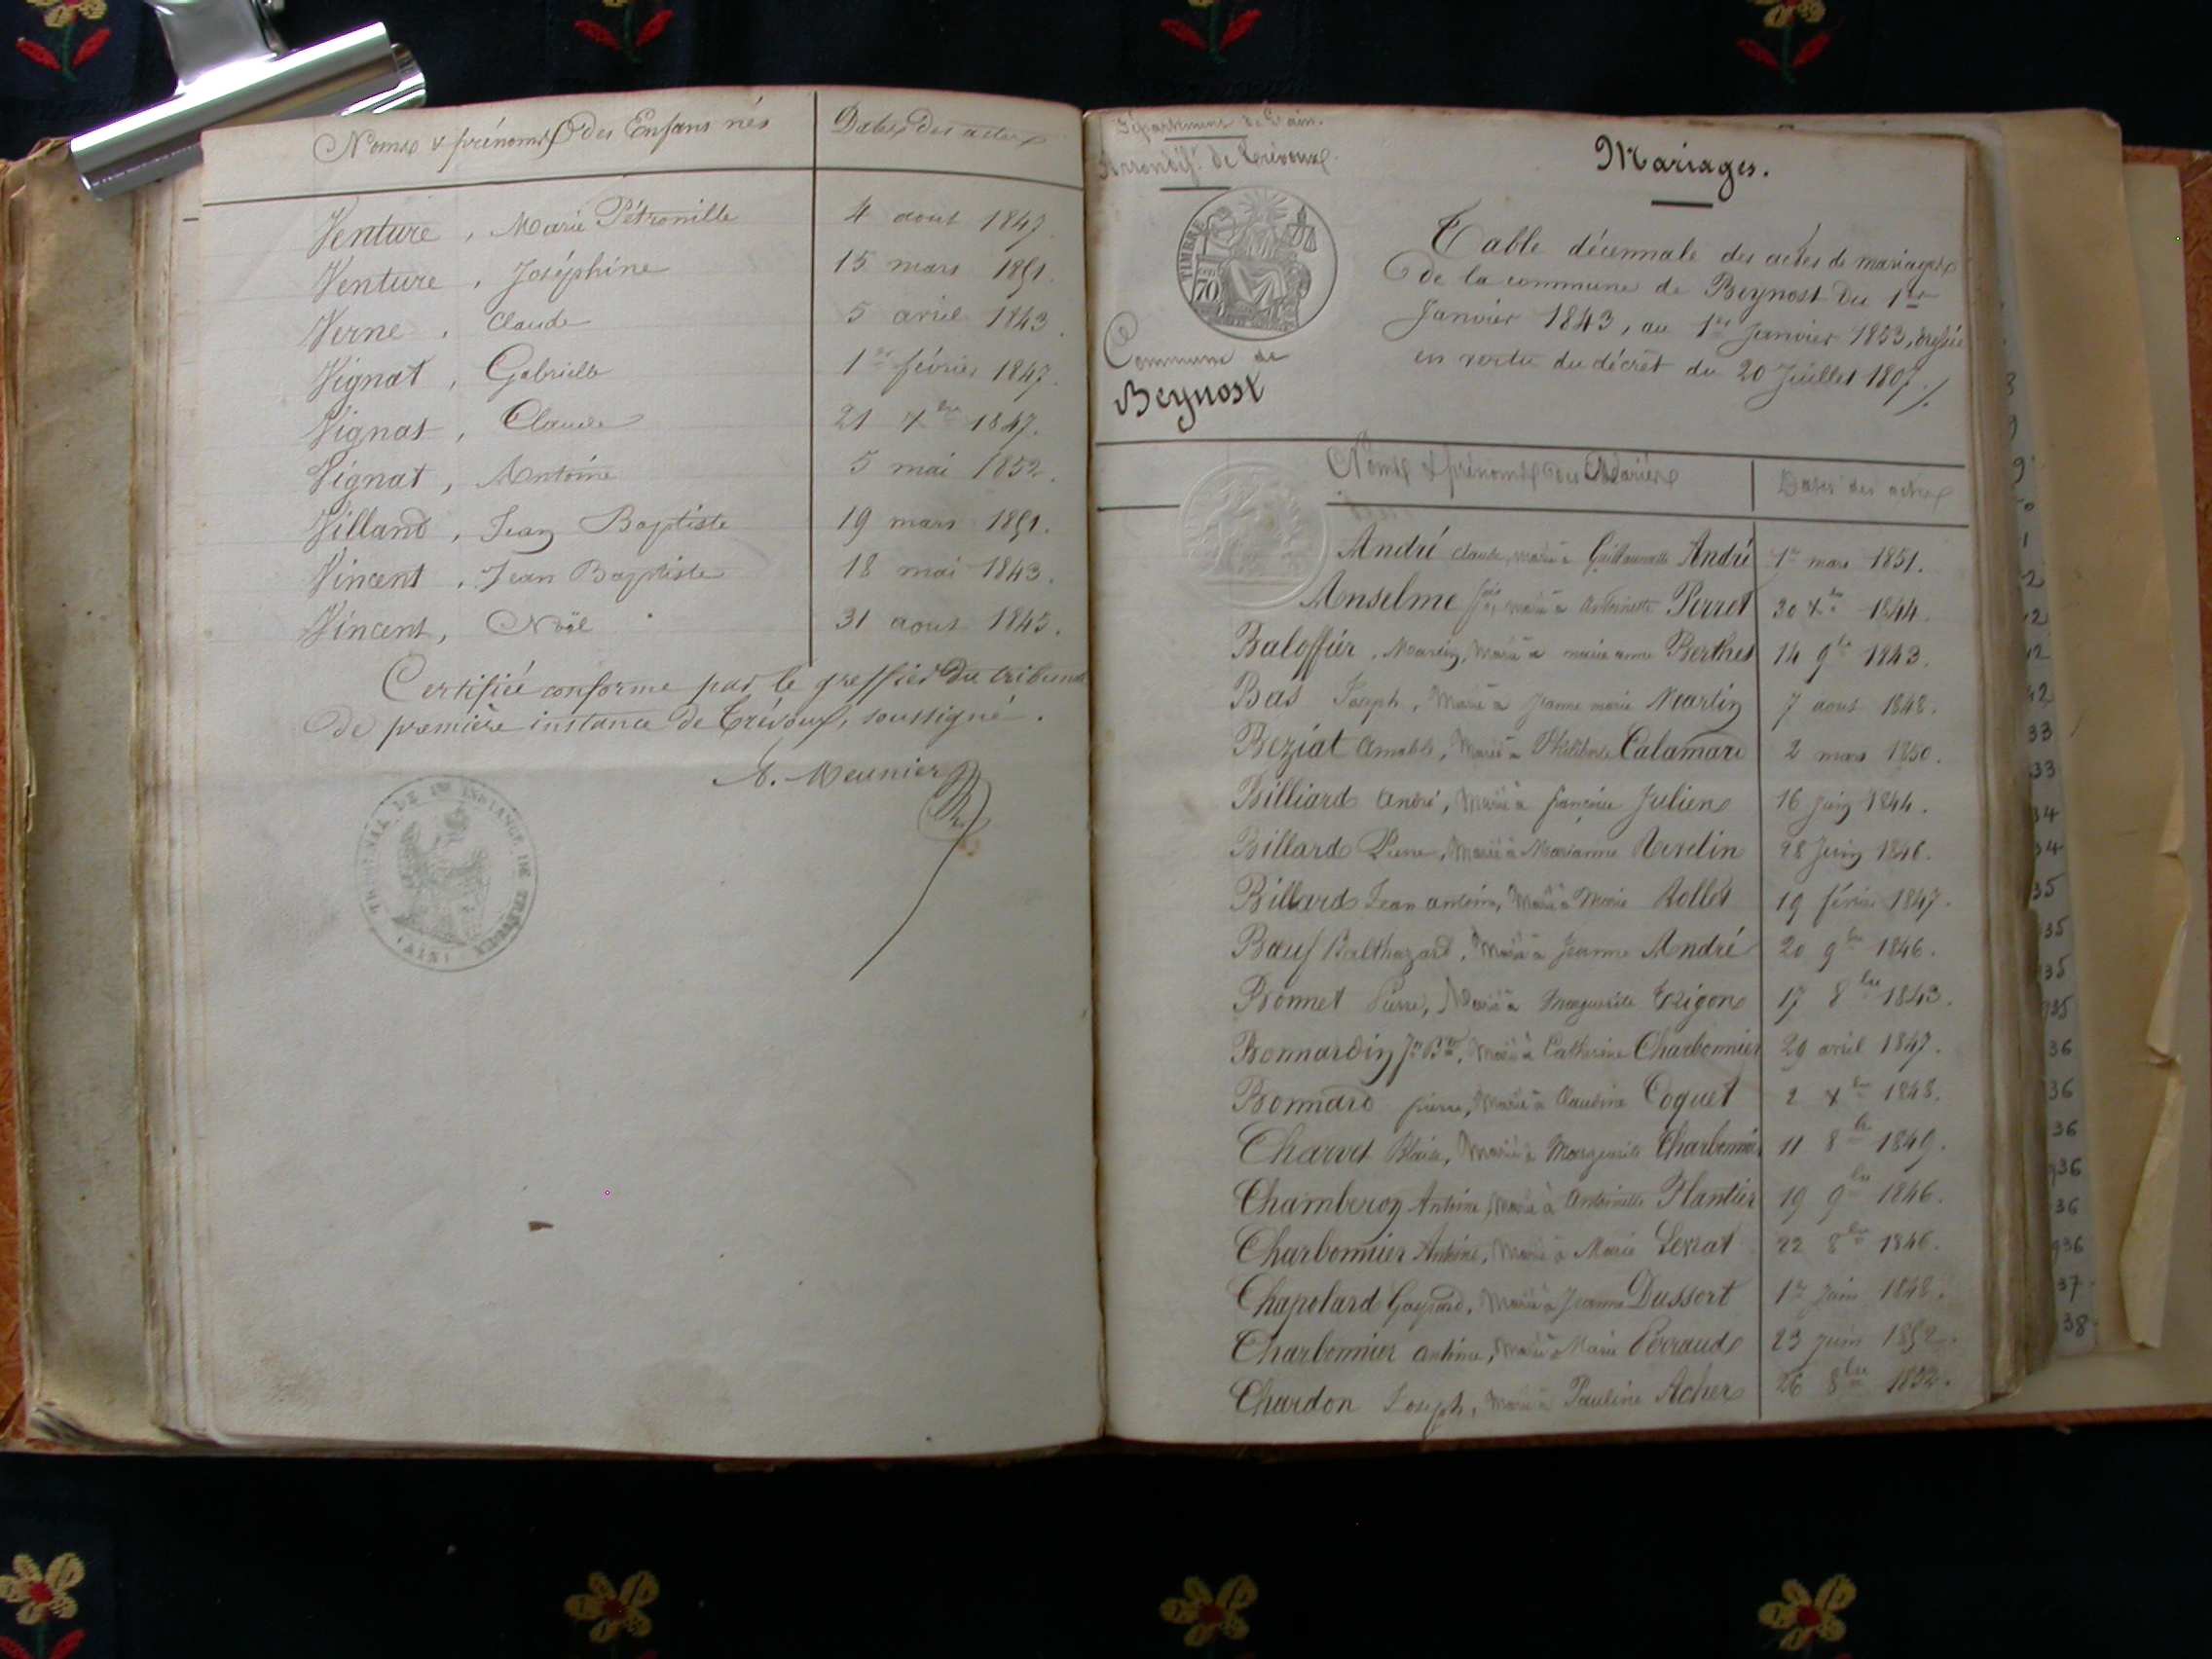 Noms & prénoms des Enfans nés Dates des actes
Venture, Marie Pétronille 4 aout 1847.
Venture, Joséphine 15 mars 1851.
Verne, Claude 5 avril 1843.
Vignat, Gabrielle 1er février 1847.
Vignat, Claude 21 Xbre 1847.
Vignat, Antoine 5 mai 1852.
Villand, Jean Baptiste 19 mars 1851.
Vincent, Jean Baptiste 18 mai 1843.
Vincent, Noël 31 aout 1845.
Certifié conforme par le greffier du tribunal
de première instance de Trévoux, soussigné.
A. Meunier
TRIBUNAL DE 1RE INSTANCE DE TRÉVOUX
(AIN)
Département de l'ain.
Arrondisst. de Trévoux.
TIMBRE
70
Commune de
Beynost
Mariages.
Table décennale des actes de mariages
de la commune de Beynost du 1er
Janvier 1843, au 1er Janvier 1853, dressée
en vertu du décret du 20 Juillet 1807./.
Noms & prénoms des Mariés Dates des actes
André Claude, marié à Guillaumette André 1er mars 1851.
Anselme marié à Antoinette Perret 30 Xbre 1844.
Baloffier, Martin, marié à marie anne Berthet 14 9bre 1843.
Bas Joseph, Marié à Jeanne marie Martin 7 aout 1848.
Beziat Amable, Marié à Philiberte Calamard 2 mars 1850.
Billiard André, Marié à françoise Julien 16 Juin 1844.
Billard Pierre, Marié à Marianne 28 Juin 1846.
Billard Jean antoine, Marié à Marie Rollet 19 février 1847.
Bœuf Balthazard, Marié à Jeanne André 20 9bre 1846.
Bonnet Pierre, Marié à Marguerite Trigon 17 8bre 1843.
Bonnardin Jn Bte, Marié à Catherine Charbonnier 29 avril 1847.
Bonnard pierre, Marié à Claudine Coquet 2 Xbre 1848.
Charvet Blaise, Marié à Marguerite Charbonnier 11 8bre 1849.
Chamberon Antoine, Marié à Antoinette Plantier 19 9bre 1846.
Charbonnier Antoine, Marié à Marie 22 8bre 1846.
Chapolard Gaspard, Marié à Jeanne Dussort 1er Juin 1848.
Charbonnier antoine, Marié à Marie Perraud 23 Juin 1852.
Chardon Joseph, Marié à Pauline Acher 26 8bre 1852.